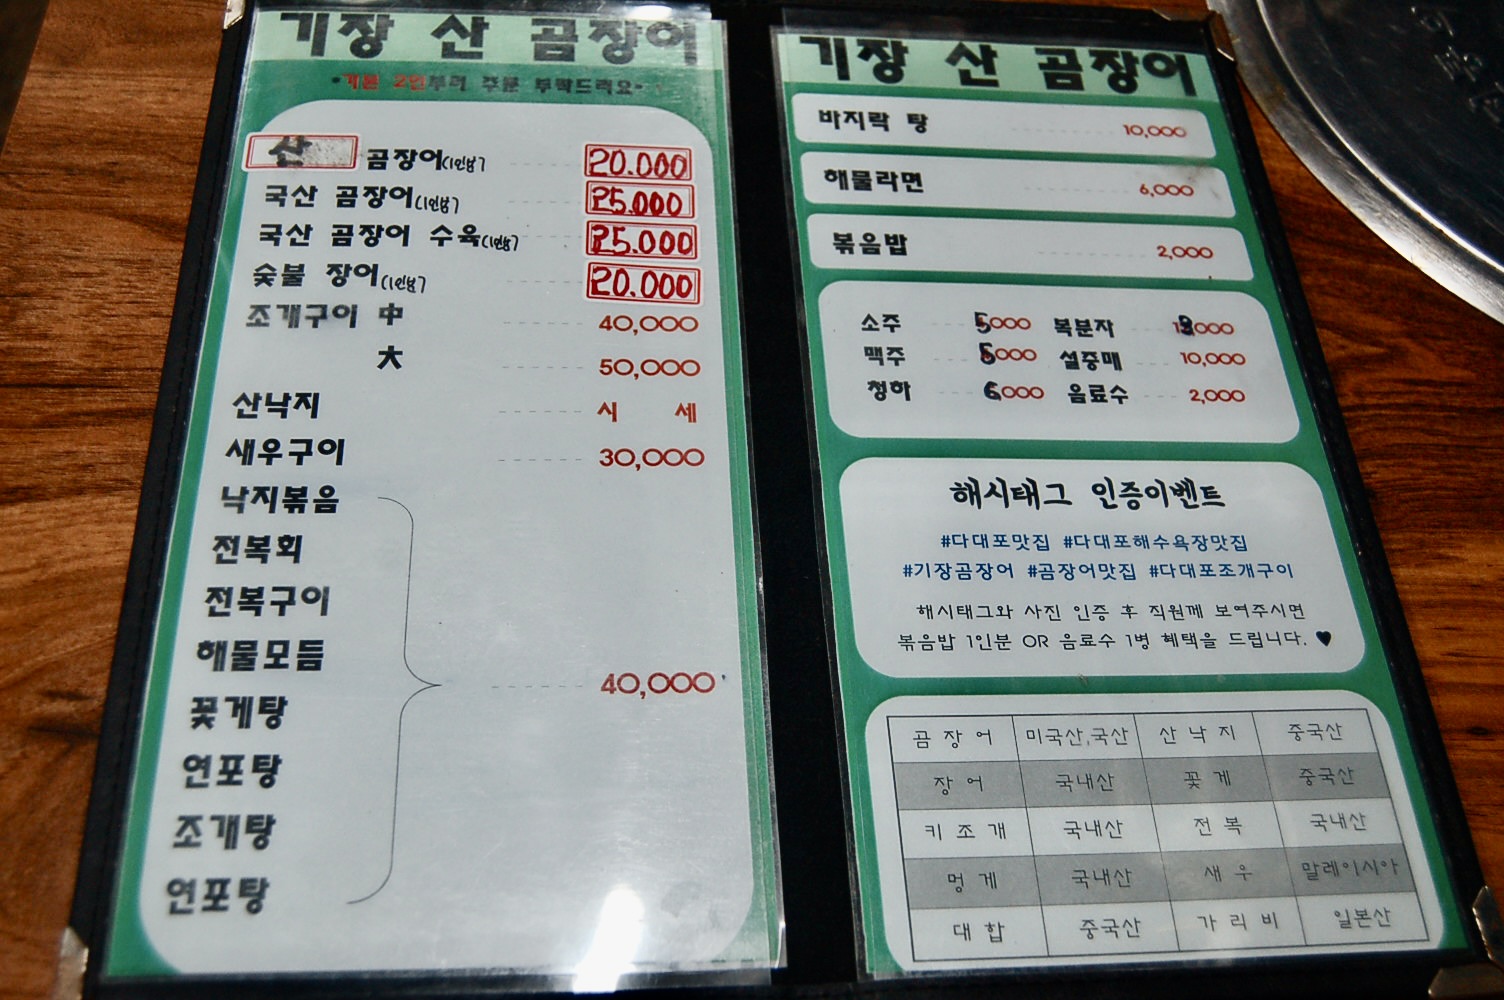 기장 산 곰장어
•기본 2인부터 주문 부탁드려요•
산 곰장어(1인분) 20.000
국산 곰장어(1인분) 25.000
국산 곰장어 수육(1인분) 25.000
숯불 장어(1인분) 20.000
조개구이 中 40,000
大 50,000
산낙지 시 세
새우구이 30,000
낙지볶음
전복회
전복구이
해물모듬
꽃게탕
연포탕
조개탕
연포탕
40,000
기장 산 곰장어
바지락 탕 10,000
해물라면 6,000
볶음밥 2,000
소주 5000 복분자
맥주 5000 설중매 10,000
청하 6000 음료수 2,000
해시태그 인증이벤트
#다대포맛집 #다대포해수욕장맛집
#기장곰장어 #곰장어맛집 #다대포조개구이
해시태그와 사진 인증 후 직원께 보여주시면
볶음밥 1인분 OR 음료수 1병 혜택을 드립니다. ♥
곰 장 어 미국산,국산 산 낙 지 중국산
장 어 국내산 꽃 게 중국산
키 조 개 국내산 전 복 국내산
멍 게 국내산 새 우 말레이시아
대 합 중국산 가 리 비 일본산